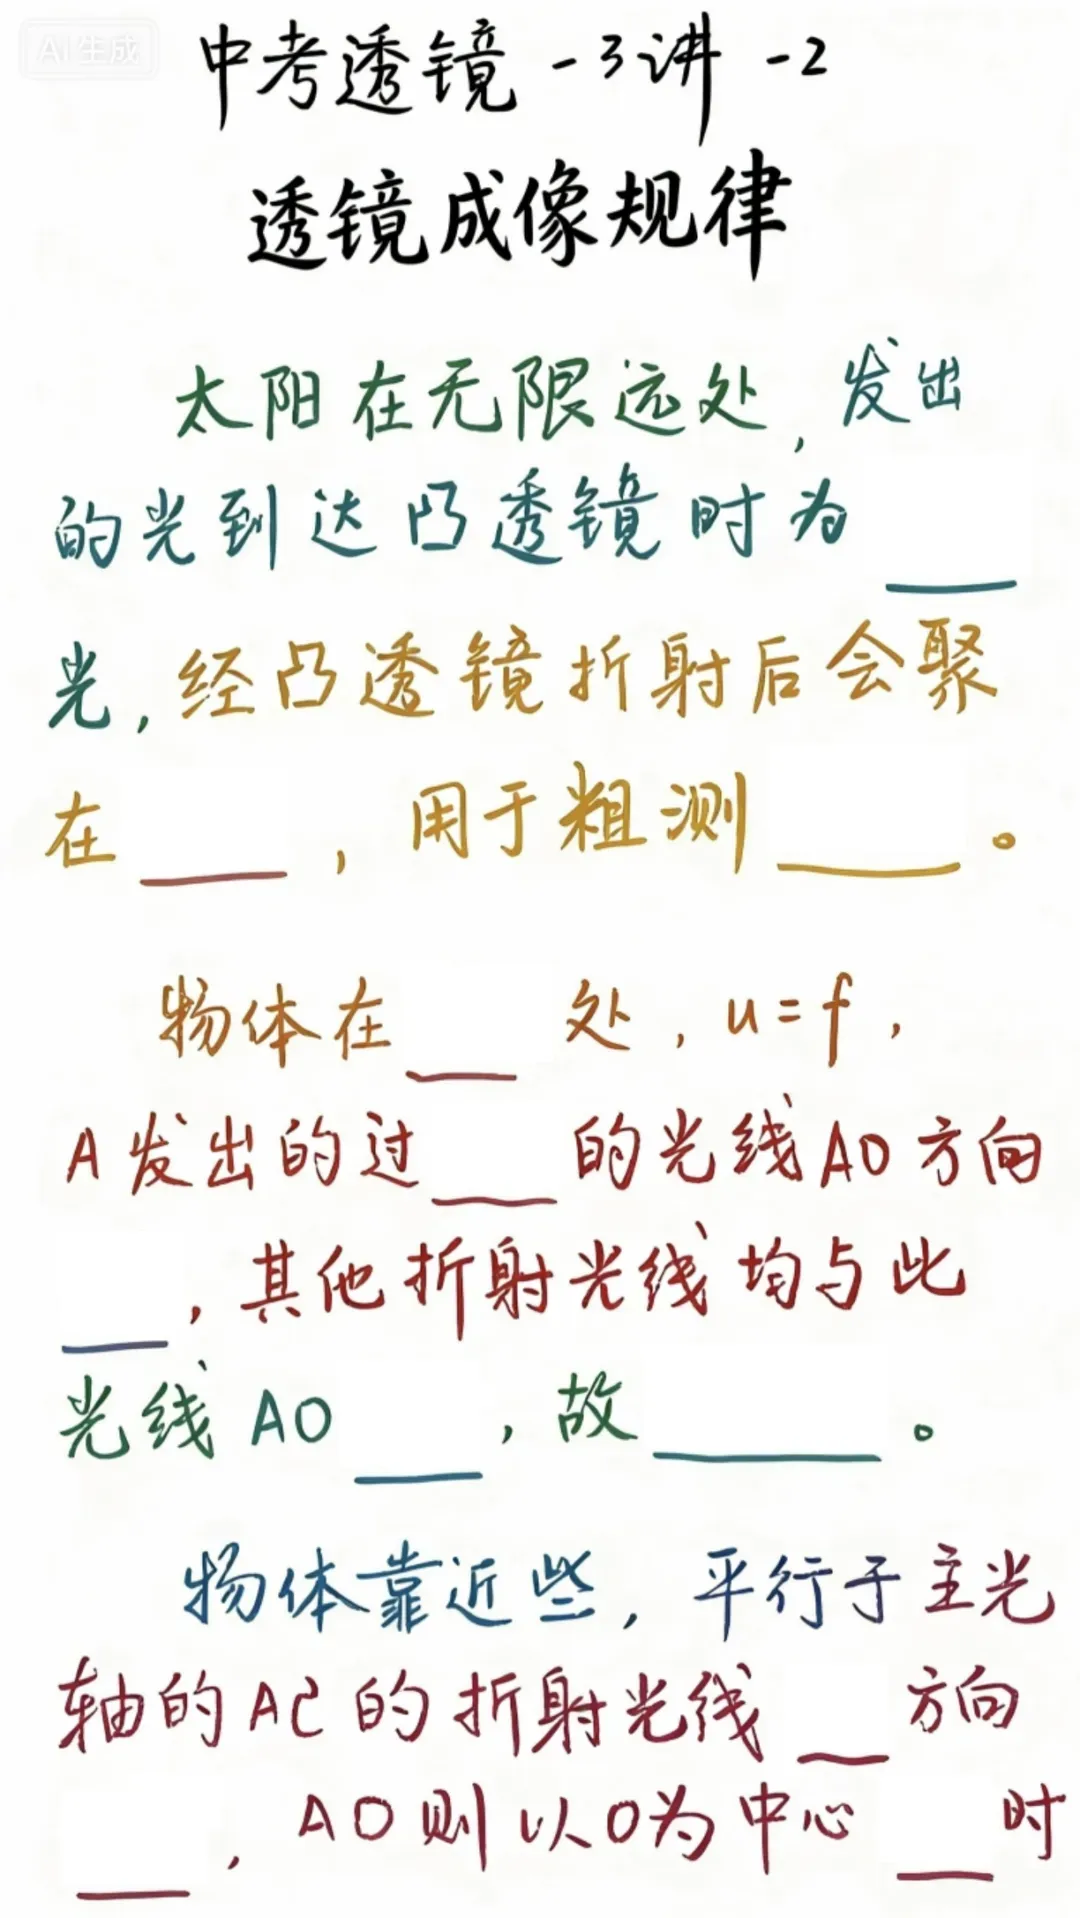 AI生成
中考透镜-3讲-2
透镜成像规律
太阳在无限远处,发出
的光到达凸透镜时为____
光,经凸透镜折射后会聚
在____,用于粗测____。
物体在____处,u=f,
A发出的过____的光线AO方向
____,其他折射光线均与此
光线AO____,故____。
物体靠近些,平行于主光
轴的AC的折射光线____方向
____,AO则以O为中心____时